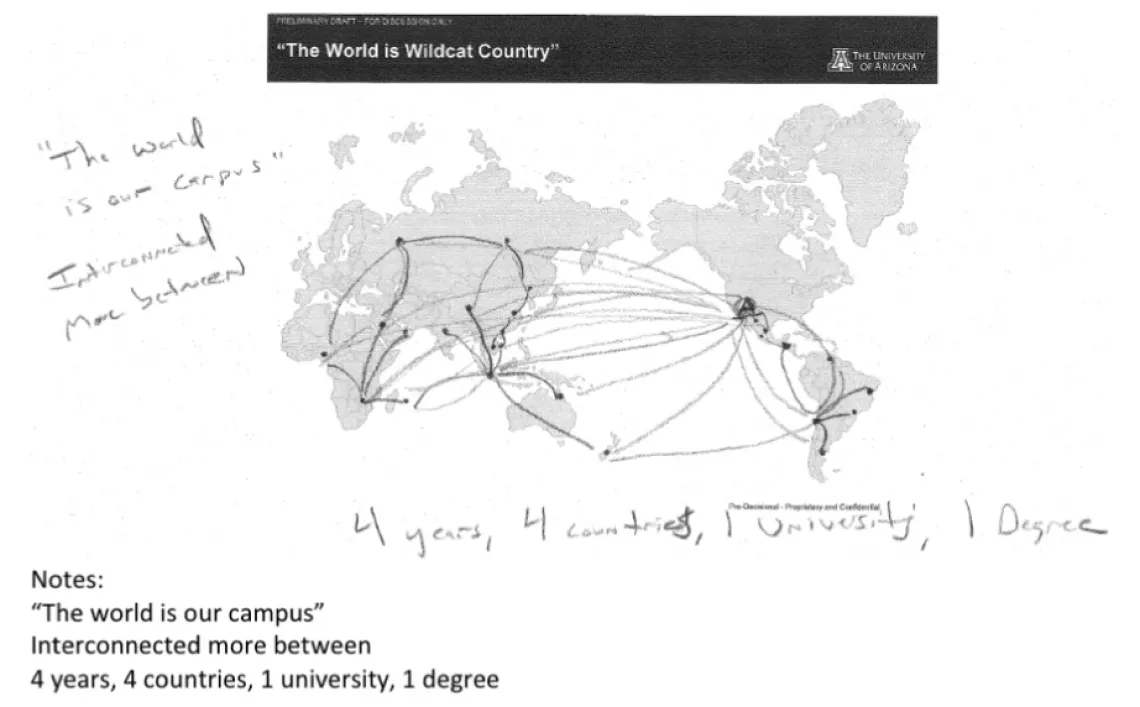 PRELIMINARY DRAFT - FOR DISCUSSION ONLY
“The World is Wildcat Country”
THE UNIVERSITY
OF ARIZONA
"The world
is our campus"
Interconnected
More between
Pre-Decisional - Proprietary and Confidential
4 years, 4 countries, 1 University, 1 Degree
Notes:
“The world is our campus”
Interconnected more between
4 years, 4 countries, 1 university, 1 degree